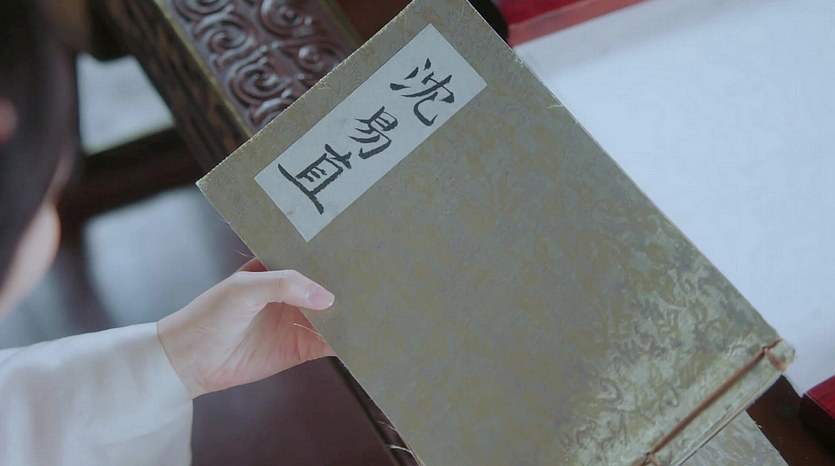 沈易直